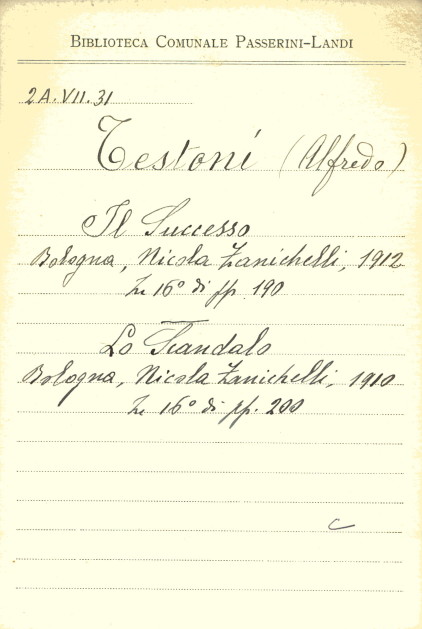 BIBLIOTECA COMUNALE PASSERINI-LANDI
2A.VII.31
Testoni (Alfredo)
Il Successo
Bologna, Nicola Zanichelli, 1912
In 16° di pp. 190
Lo Scandalo
Bologna, Nicola Zanichelli, 1910
In 16° di pp. 200
C